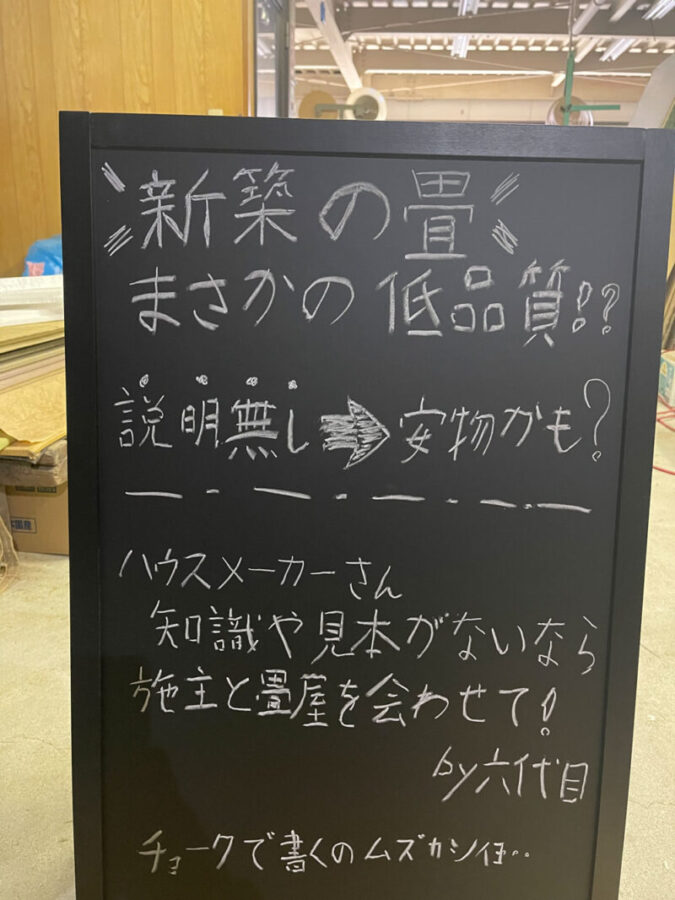 新築の畳
まさかの低品質!?
説明無し➡安物かも?
ハウスメーカーさん
知識や見本がないなら
施主と畳屋を会わせて!
by六代目
チョークで書くのムズカシイヨ‥
国産